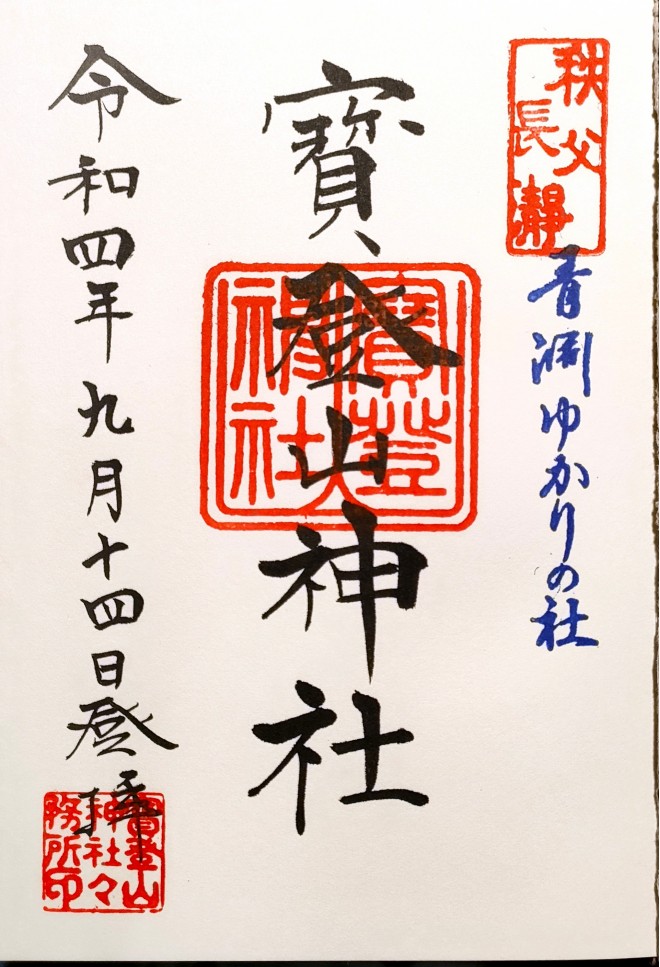 秩父
長瀞
青淵ゆかりの社
寶登山神社
寶登山
神社
令和四年九月十四日登拝
寶登山
神社々
務所印